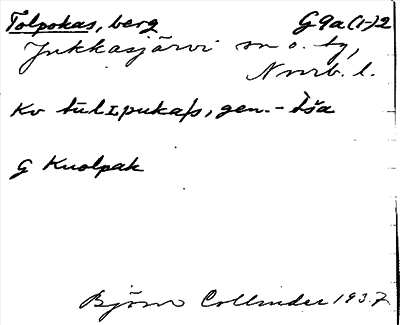 Tolpokas, berg G9a(1-)2
Jukkasjärvi sn o. tg,
Norrb. l.
Kv tŭlɪpuka/s, gen. -šša
G Kuolpak
Björn Collinder 1937